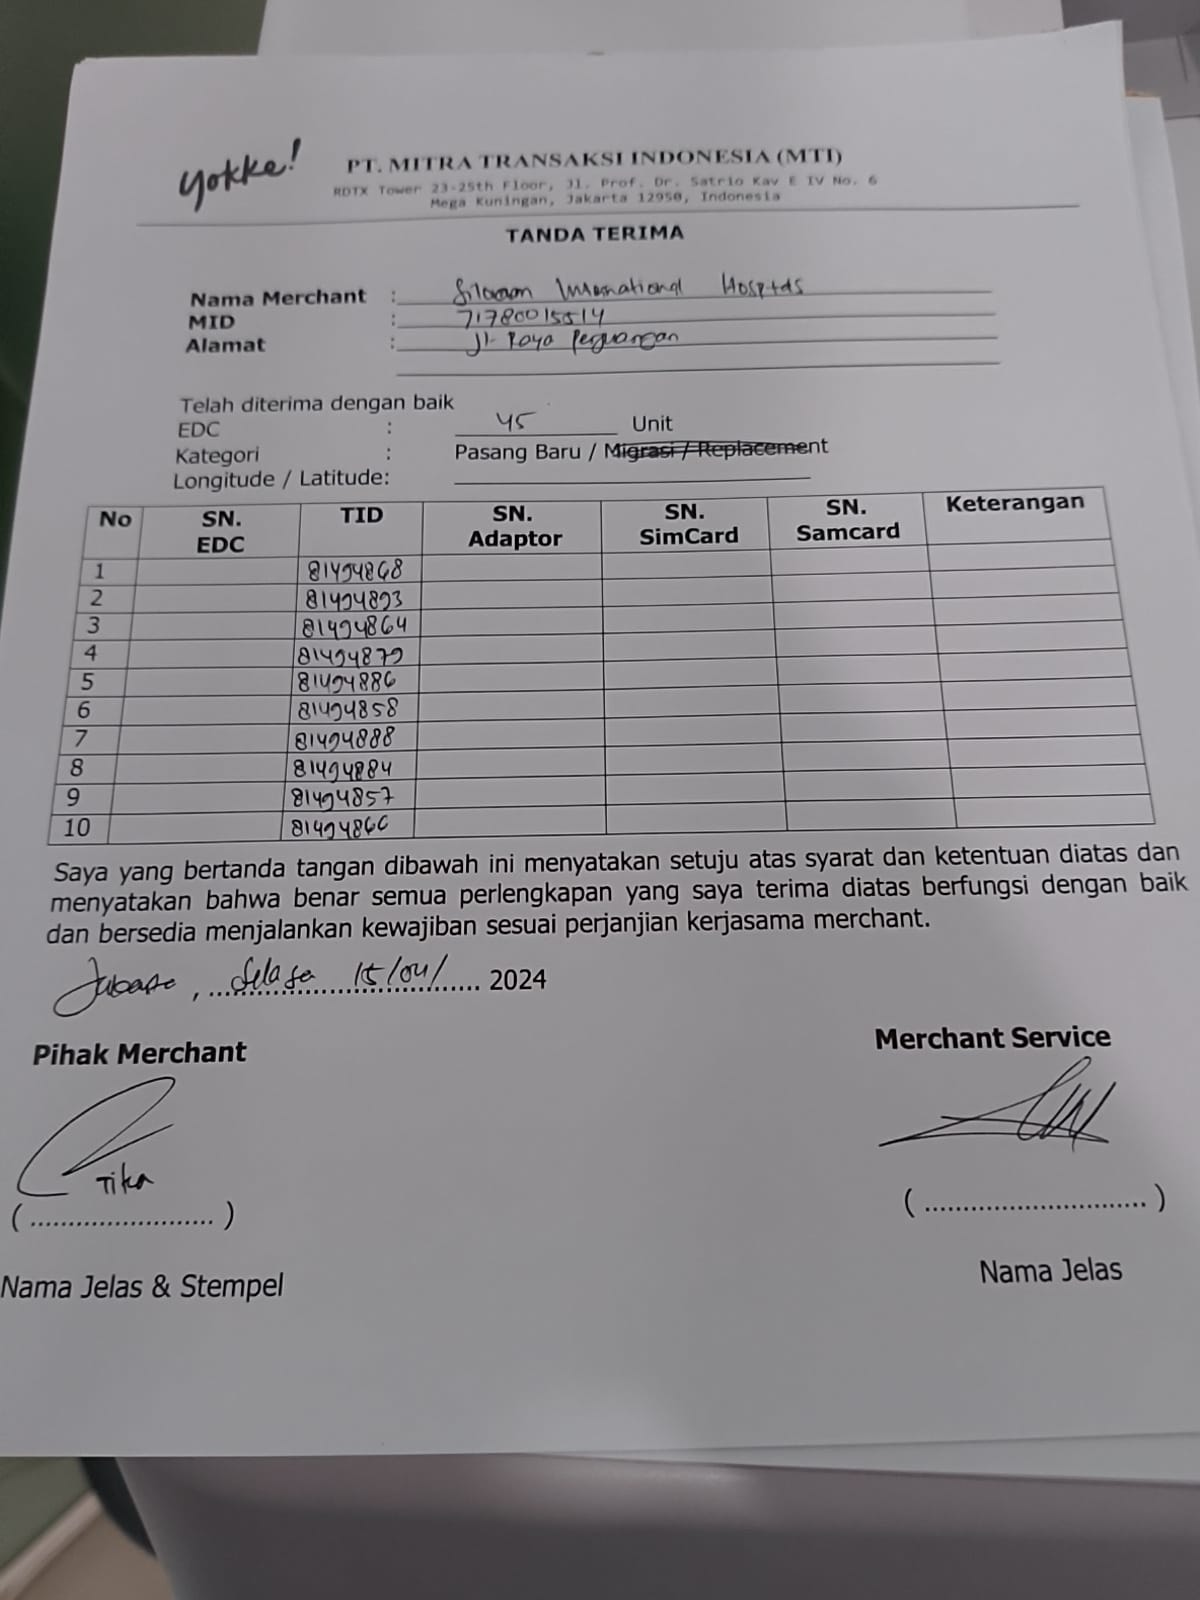 yokke!
PT. MITRA TRANSAKSI INDONESIA (MTI)
RDTX Tower 23-25th Floor, Jl. Prof. Dr. Satrio Kav E IV No. 6
Mega Kuningan, Jakarta 12950, Indonesia
TANDA TERIMA
Nama Merchant : International
MID : 71780015514
Alamat : Jl. Raya
Telah diterima dengan baik
EDC : 45 Unit
Kategori : Pasang Baru / Migrasi / Replacement
Longitude / Latitude:
No SN. EDC TID SN. Adaptor SN. SimCard SN. Samcard Keterangan
1 81494868
2 81494893
3 81494864
4 81494879
5 81494886
6 81494858
7 81494888
8 81494884
9 81494857
10 81494866
Saya yang bertanda tangan dibawah ini menyatakan setuju atas syarat dan ketentuan diatas dan
menyatakan bahwa benar semua perlengkapan yang saya terima diatas berfungsi dengan baik
dan bersedia menjalankan kewajiban sesuai perjanjian kerjasama merchant.
, Selasa 15/04/ 2024
Pihak Merchant Merchant Service
Tika
(........................) (.............................)
Nama Jelas & Stempel Nama Jelas